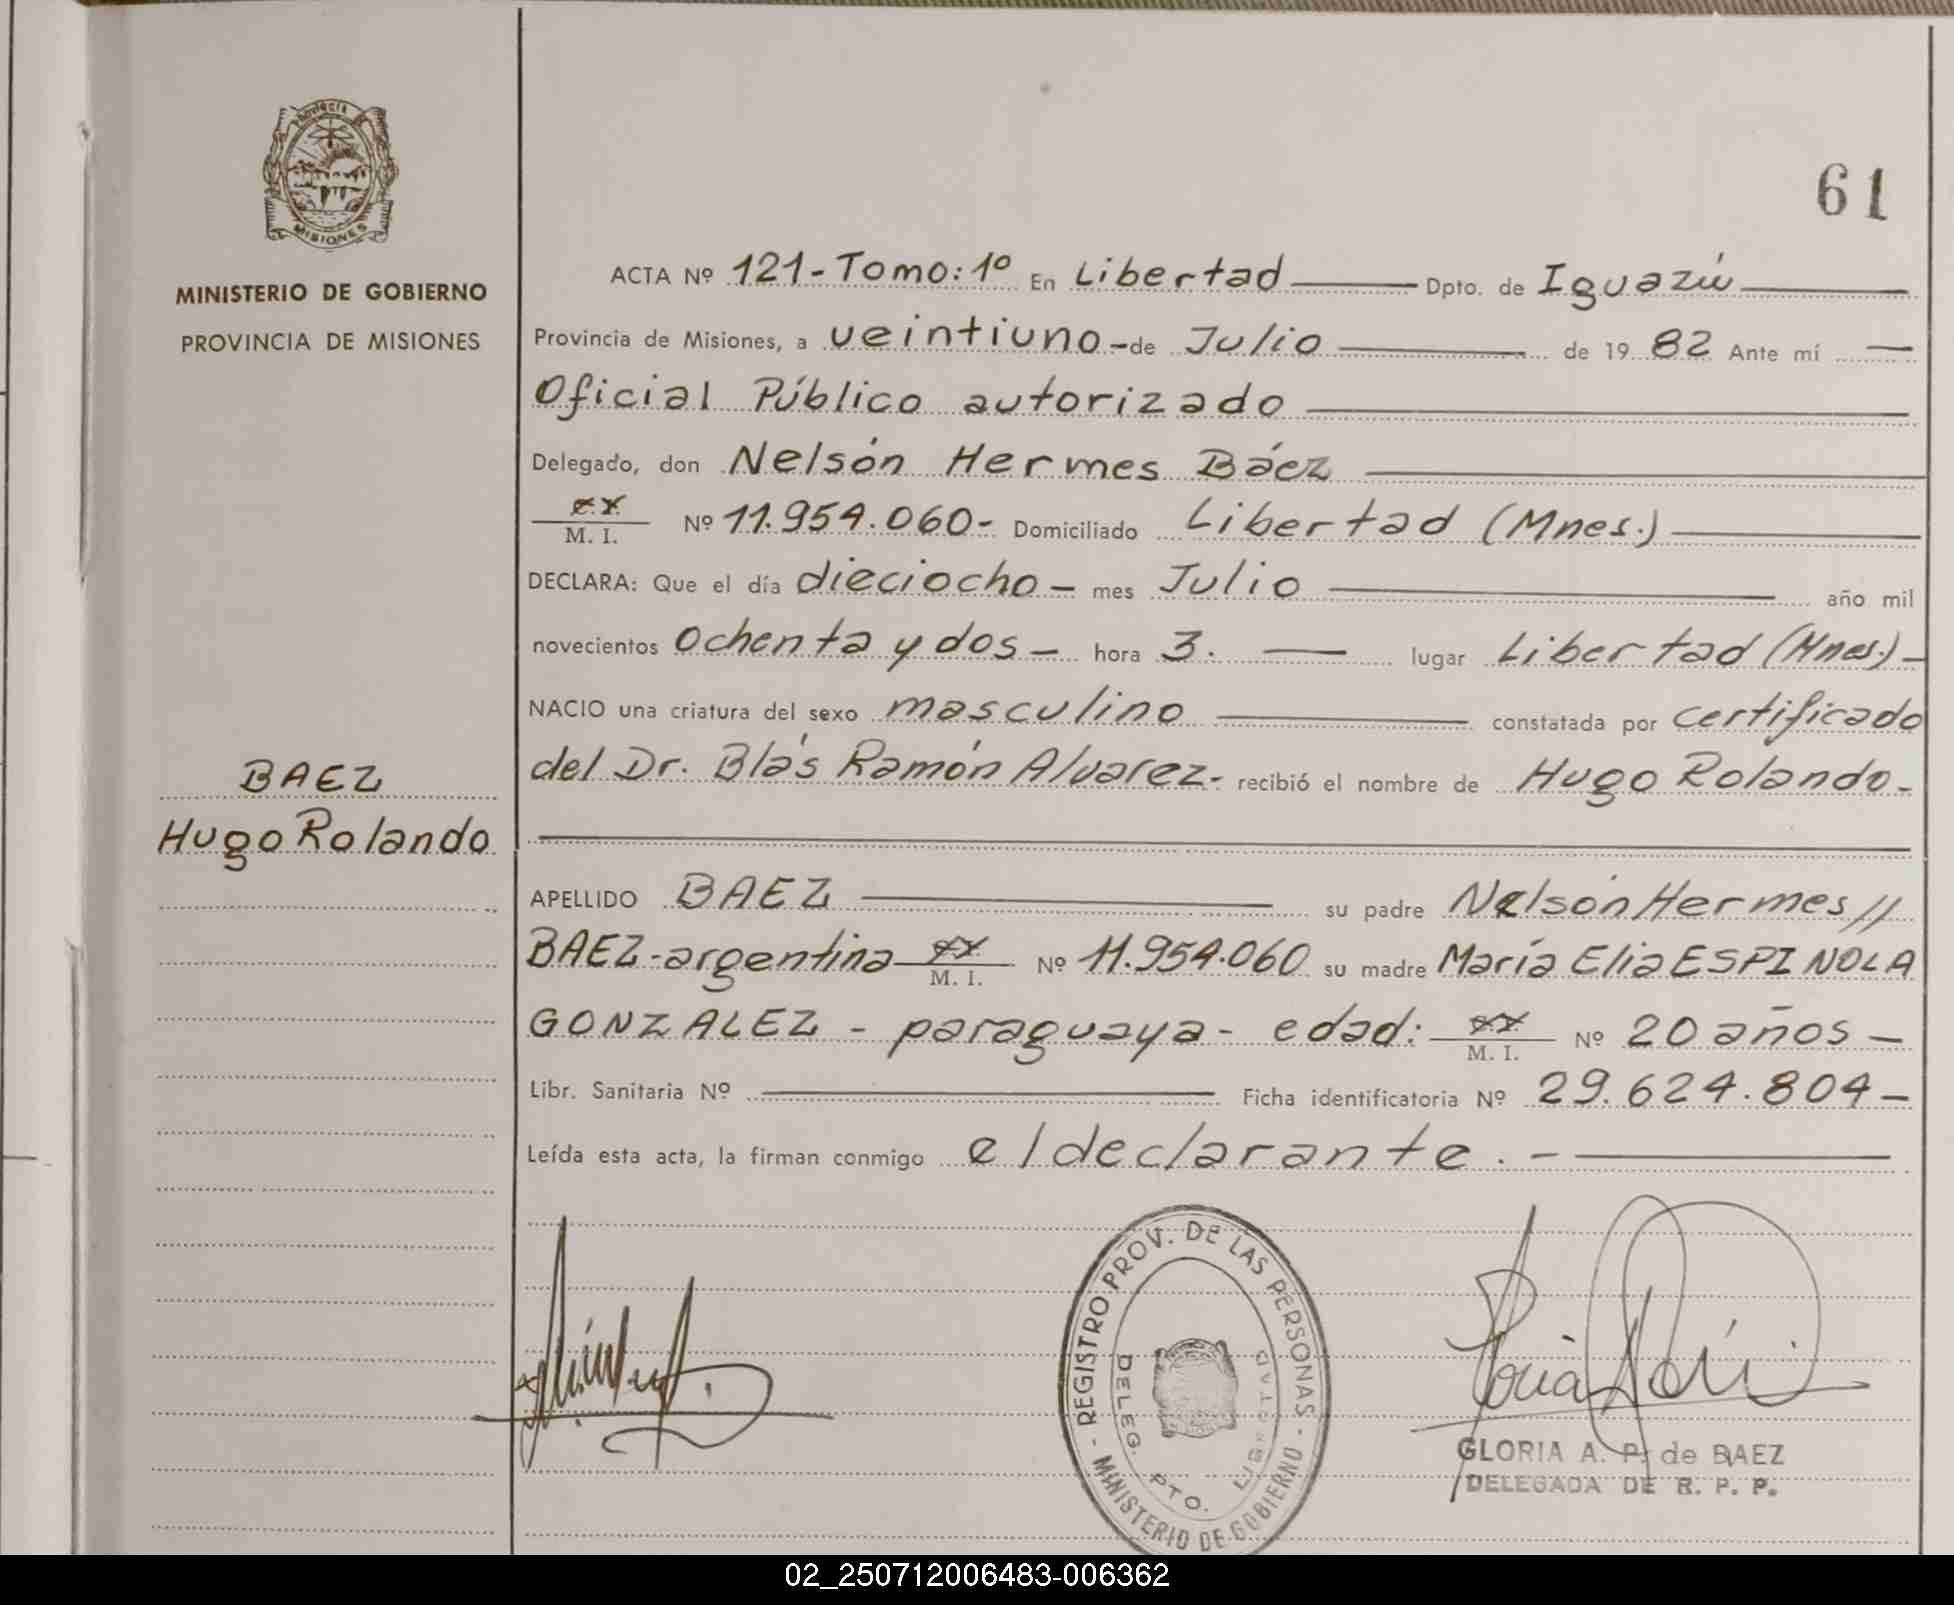 Provincia
MISIONES
MINISTERIO DE GOBIERNO
PROVINCIA DE MISIONES
BAEZ
Hugo Rolando
61
ACTA Nº 121-Tomo: 1º En Libertad Dpto. de Iguazú
Provincia de Misiones, a veintiuno-de Julio de 19 82 Ante mí
Oficial Público autorizado
Delegado, don Nelsón Hermes Báez
M. I. Nº 11.954.060- Domiciliado Libertad (Mnes.)
DECLARA: Que el día dieciocho- mes Julio año mil
novecientos ochenta y dos- hora 3. lugar Libertad (Mnes.)-
NACIO una criatura del sexo masculino constatada por certificado
del Dr. Blás Ramón Alvarez- recibió el nombre de Hugo Rolando-
APELLIDO BAEZ su padre Nelsón Hermes //
BAEZ-argentina M. I. Nº 11.954.060 su madre María Elia ESPINOLA
GONZALEZ - paraguaya - edad: M. I. Nº 20 años-
Libr. Sanitaria Nº Ficha identificatoria Nº 29.624.804-
Leída esta acta, la firman conmigo el declarante.-
REGISTRO PROV. DE LAS PERSONAS - MINISTERIO DE GOBIERNO -
DELEG. PTO. LIBERTAD
GLORIA A. P. de BAEZ
DELEGADA DE R. P. P.
02_250712006483-006362